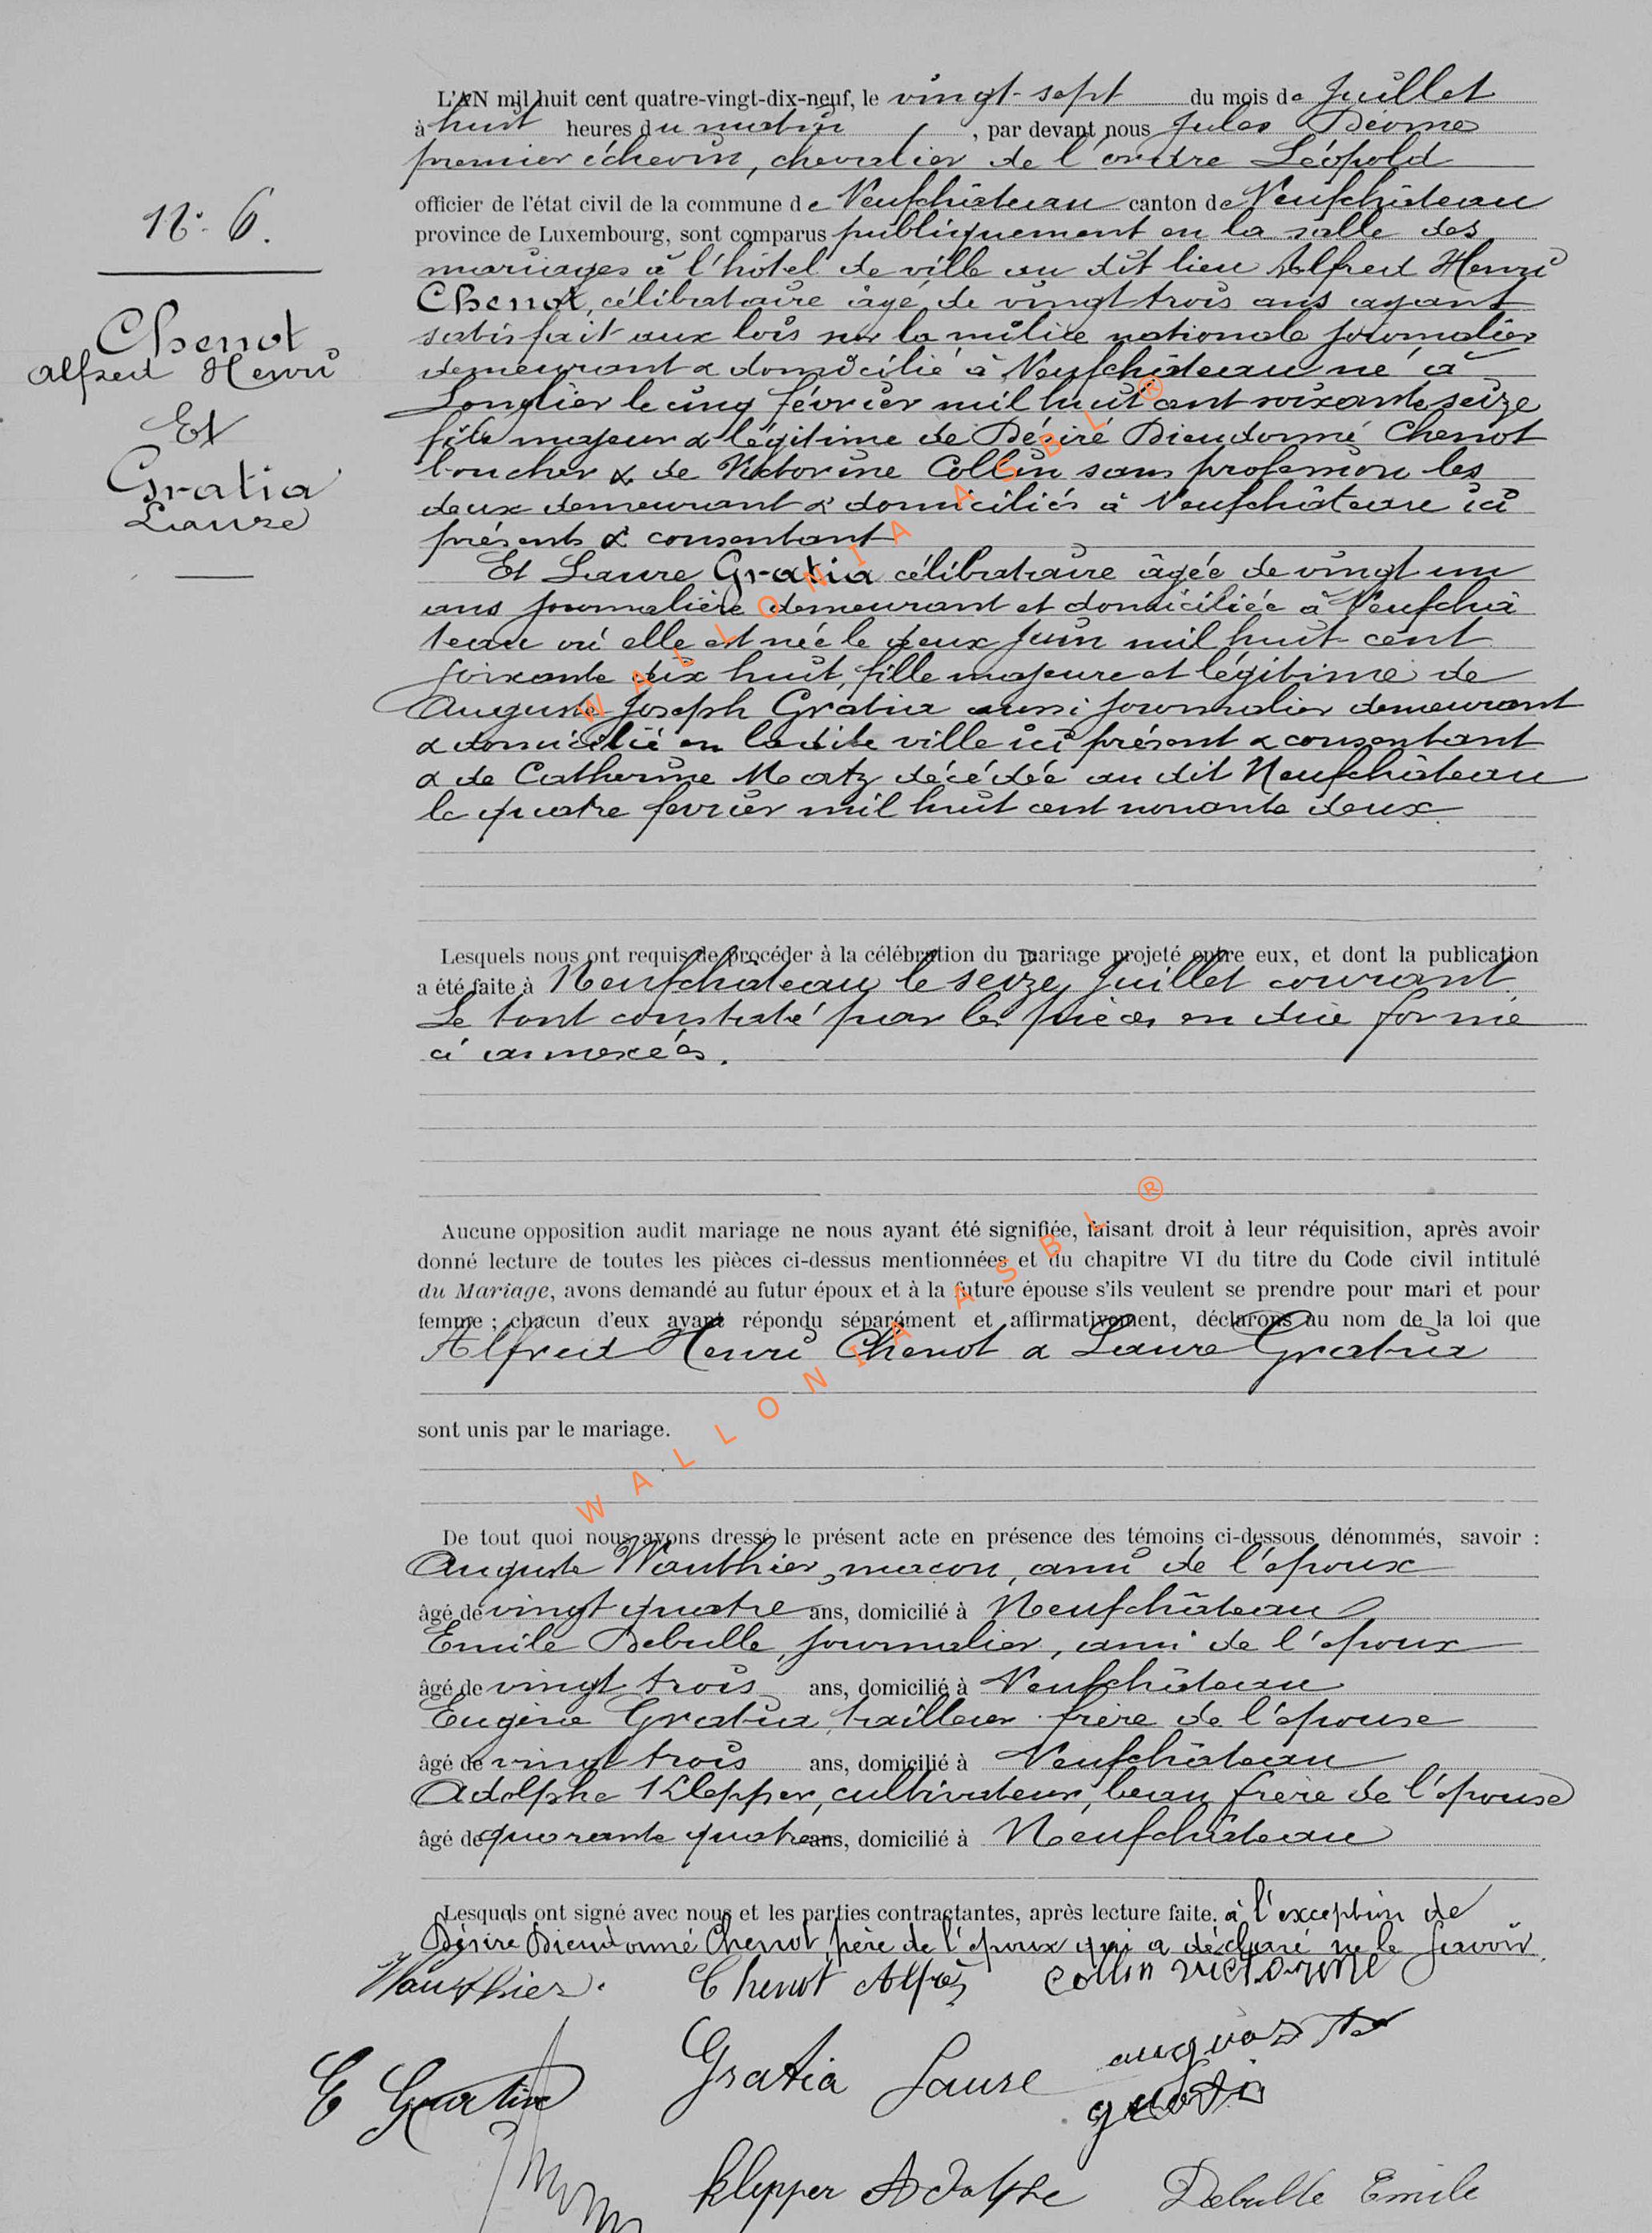 L'AN mil huit cent quatre-vingt-dix-neuf, le vingt-sept du mois de Juillet
à huit heures du matin, par devant nous Jules
premier échevin, chevalier de l'ordre Léopold
officier de l'état civil de la commune de Neufchâteau canton de Neufchâteau
province de Luxembourg, sont comparus publiquement en la salle des
mariages à l'hôtel de ville au dit lieu Alfred Henri
Chenot, célibataire âgé de vingt trois ans ayant
satisfait aux lois sur la milice nationale journalier
demeurant & domicilié à Neufchâteau né à
Longlier le cinq février mil huit cent soixante seize
fils majeur & légitime de Désiré Dieudonné Chenot
boucher & de Victorine Collin sans profession les
deux demeurant & domiciliés à Neufchâteau ici
présents & consentant
Et Laure Gratia célibataire âgée de vingt un
ans journalière demeurant et domiciliée à Neufchâ
teau où elle est née le deux juin mil huit cent
soixante dix huit, fille majeure et légitime de
Auguste Joseph Gratia aussi journalier demeurant
& domicilié en ladite ville ici présent & consentant
& de Catherine Meortz décédée au dit Neufchâteau
le quatre fevrier mil huit cent nonante deux
N°. 6.
Chenot
Alfred Henri
Et
Gratia
Laure
Lesquels nous ont requis de procéder à la célébration du mariage projeté entre eux, et dont la publication
a été faite à Neufchâteau le seize Juillet courant.
Le tout constaté par les pièces en due forme
ci annexées.
Aucune opposition audit mariage ne nous ayant été signifiée, faisant droit à leur réquisition, après avoir
donné lecture de toutes les pièces ci-dessus mentionnées et du chapitre VI du titre du Code civil intitulé
du Mariage, avons demandé au futur époux et à la future épouse s'ils veulent se prendre pour mari et pour
femme ; chacun d'eux ayant répondu séparément et affirmativement, déclarons au nom de la loi que
Alfred Henri Chenot & Laure Gratia
sont unis par le mariage.
De tout quoi nous avons dressé le présent acte en présence des témoins ci-dessous dénommés, savoir :
Auguste Wauthier, macon, ami de l'époux
âgé de vingt quatre ans, domicilié à Neufchâteau
Emile Debulle, journalier, ami de l'époux
âgé de vingt trois ans, domicilié à Neufchâteau
Eugène Gratia, tailleur frère de l'épouse
âgé de vingt trois ans, domicilié à Neufchâteau
Adolphe Klepper, cultivateur, beau frère de l'épouse
âgé de quarante quatre ans, domicilié à Neufchâteau
Lesquels ont signé avec nous et les parties contractantes, après lecture faite. à l'exception de
Désiré Dieudonné Chenot père de l'époux qui a déclaré ne le savoir.
Wauthier. Chenot Alfred Collin Victorine
E Gratia Gratia Laure auguste
gratia
Klepper Adolphe Debulle Emile
WALLONIA ASBL ®
WALLONIA ASBL ®